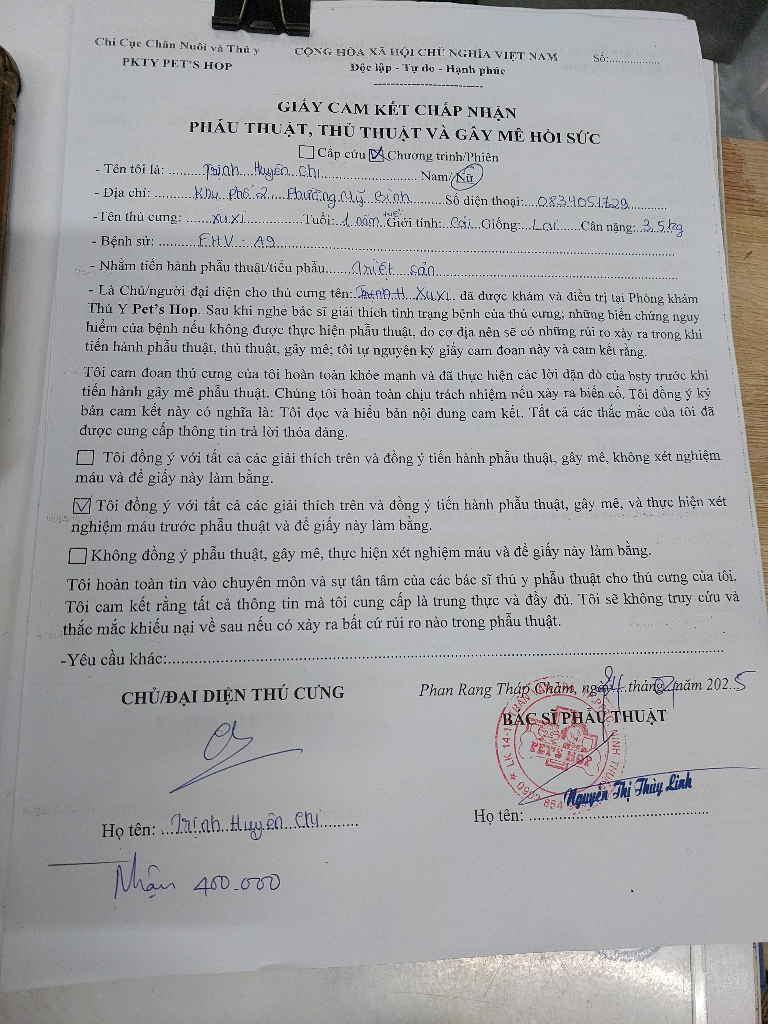 Chi Cục Chăn Nuôi và Thú y
PKTY PET'S HOP
CỘNG HÒA XÃ HỘI CHỦ NGHĨA VIỆT NAM
Độc lập - Tự do - Hạnh phúc
Số:.................
GIẤY CAM KẾT CHẤP NHẬN
PHẪU THUẬT, THỦ THUẬT VÀ GÂY MÊ HỒI SỨC
☐ Cấp cứu ☒ Chương trình/Phiên
- Tên tôi là: Trịnh Huyền Chi Nam/Nữ
- Địa chỉ: Khu phố 2 Phường Mỹ Bình Số điện thoại: 0834051729
-Tên thú cưng: XuXi Tuổi: 1 năm tuổi Giới tính: Cái Giống: Lai Cân nặng: 3,5kg
- Bệnh sử: FHV - A9
- Nhằm tiến hành phẫu thuật/tiểu phẫu Triệt sản
- Là Chủ/người đại diện cho thú cưng tên: XuXi đã được khám và điều trị tại Phòng khám
Thú Y Pet's Hop. Sau khi nghe bác sĩ giải thích tình trạng bệnh của thú cưng; những biến chứng nguy
hiểm của bệnh nếu không được thực hiện phẫu thuật, do cơ địa nên sẽ có những rủi ro xảy ra trong khi
tiến hành phẫu thuật, thủ thuật, gây mê; tôi tự nguyện ký giấy cam đoan này và cam kết rằng.
Tôi cam đoan thú cưng của tôi hoàn toàn khỏe mạnh và đã thực hiện các lời dặn dò của bsty trước khi
tiến hành gây mê phẫu thuật. Chúng tôi hoàn toàn chịu trách nhiệm nếu xảy ra biến cố. Tôi đồng ý ký
bản cam kết này có nghĩa là: Tôi đọc và hiểu bản nội dung cam kết. Tất cả các thắc mắc của tôi đã
được cung cấp thông tin trả lời thỏa đáng.
☐ Tôi đồng ý với tất cả các giải thích trên và đồng ý tiến hành phẫu thuật, gây mê, không xét nghiệm
máu và để giấy này làm bằng.
☑ Tôi đồng ý với tất cả các giải thích trên và đồng ý tiến hành phẫu thuật, gây mê, và thực hiện xét
nghiệm máu trước phẫu thuật và để giấy này làm bằng.
☐ Không đồng ý phẫu thuật, gây mê, thực hiện xét nghiệm máu và để giấy này làm bằng.
Tôi hoàn toàn tin vào chuyên môn và sự tân tâm của các bác sĩ thú y phẫu thuật cho thú cưng của tôi.
Tôi cam kết rằng tất cả thông tin mà tôi cung cấp là trung thực và đầy đủ. Tôi sẽ không truy cứu và
thắc mắc khiếu nại về sau nếu có xảy ra bất cứ rủi ro nào trong phẫu thuật.
-Yêu cầu khác:
Phan Rang Tháp Chàm, ngày tháng năm 2025
CHỦ/ĐẠI DIỆN THÚ CƯNG
BÁC SĨ PHẪU THUẬT
PET'S HOP
Nguyễn Thị Thùy Linh
Họ tên: Trịnh Huyền Chi
Họ tên:
Nhận 400.000